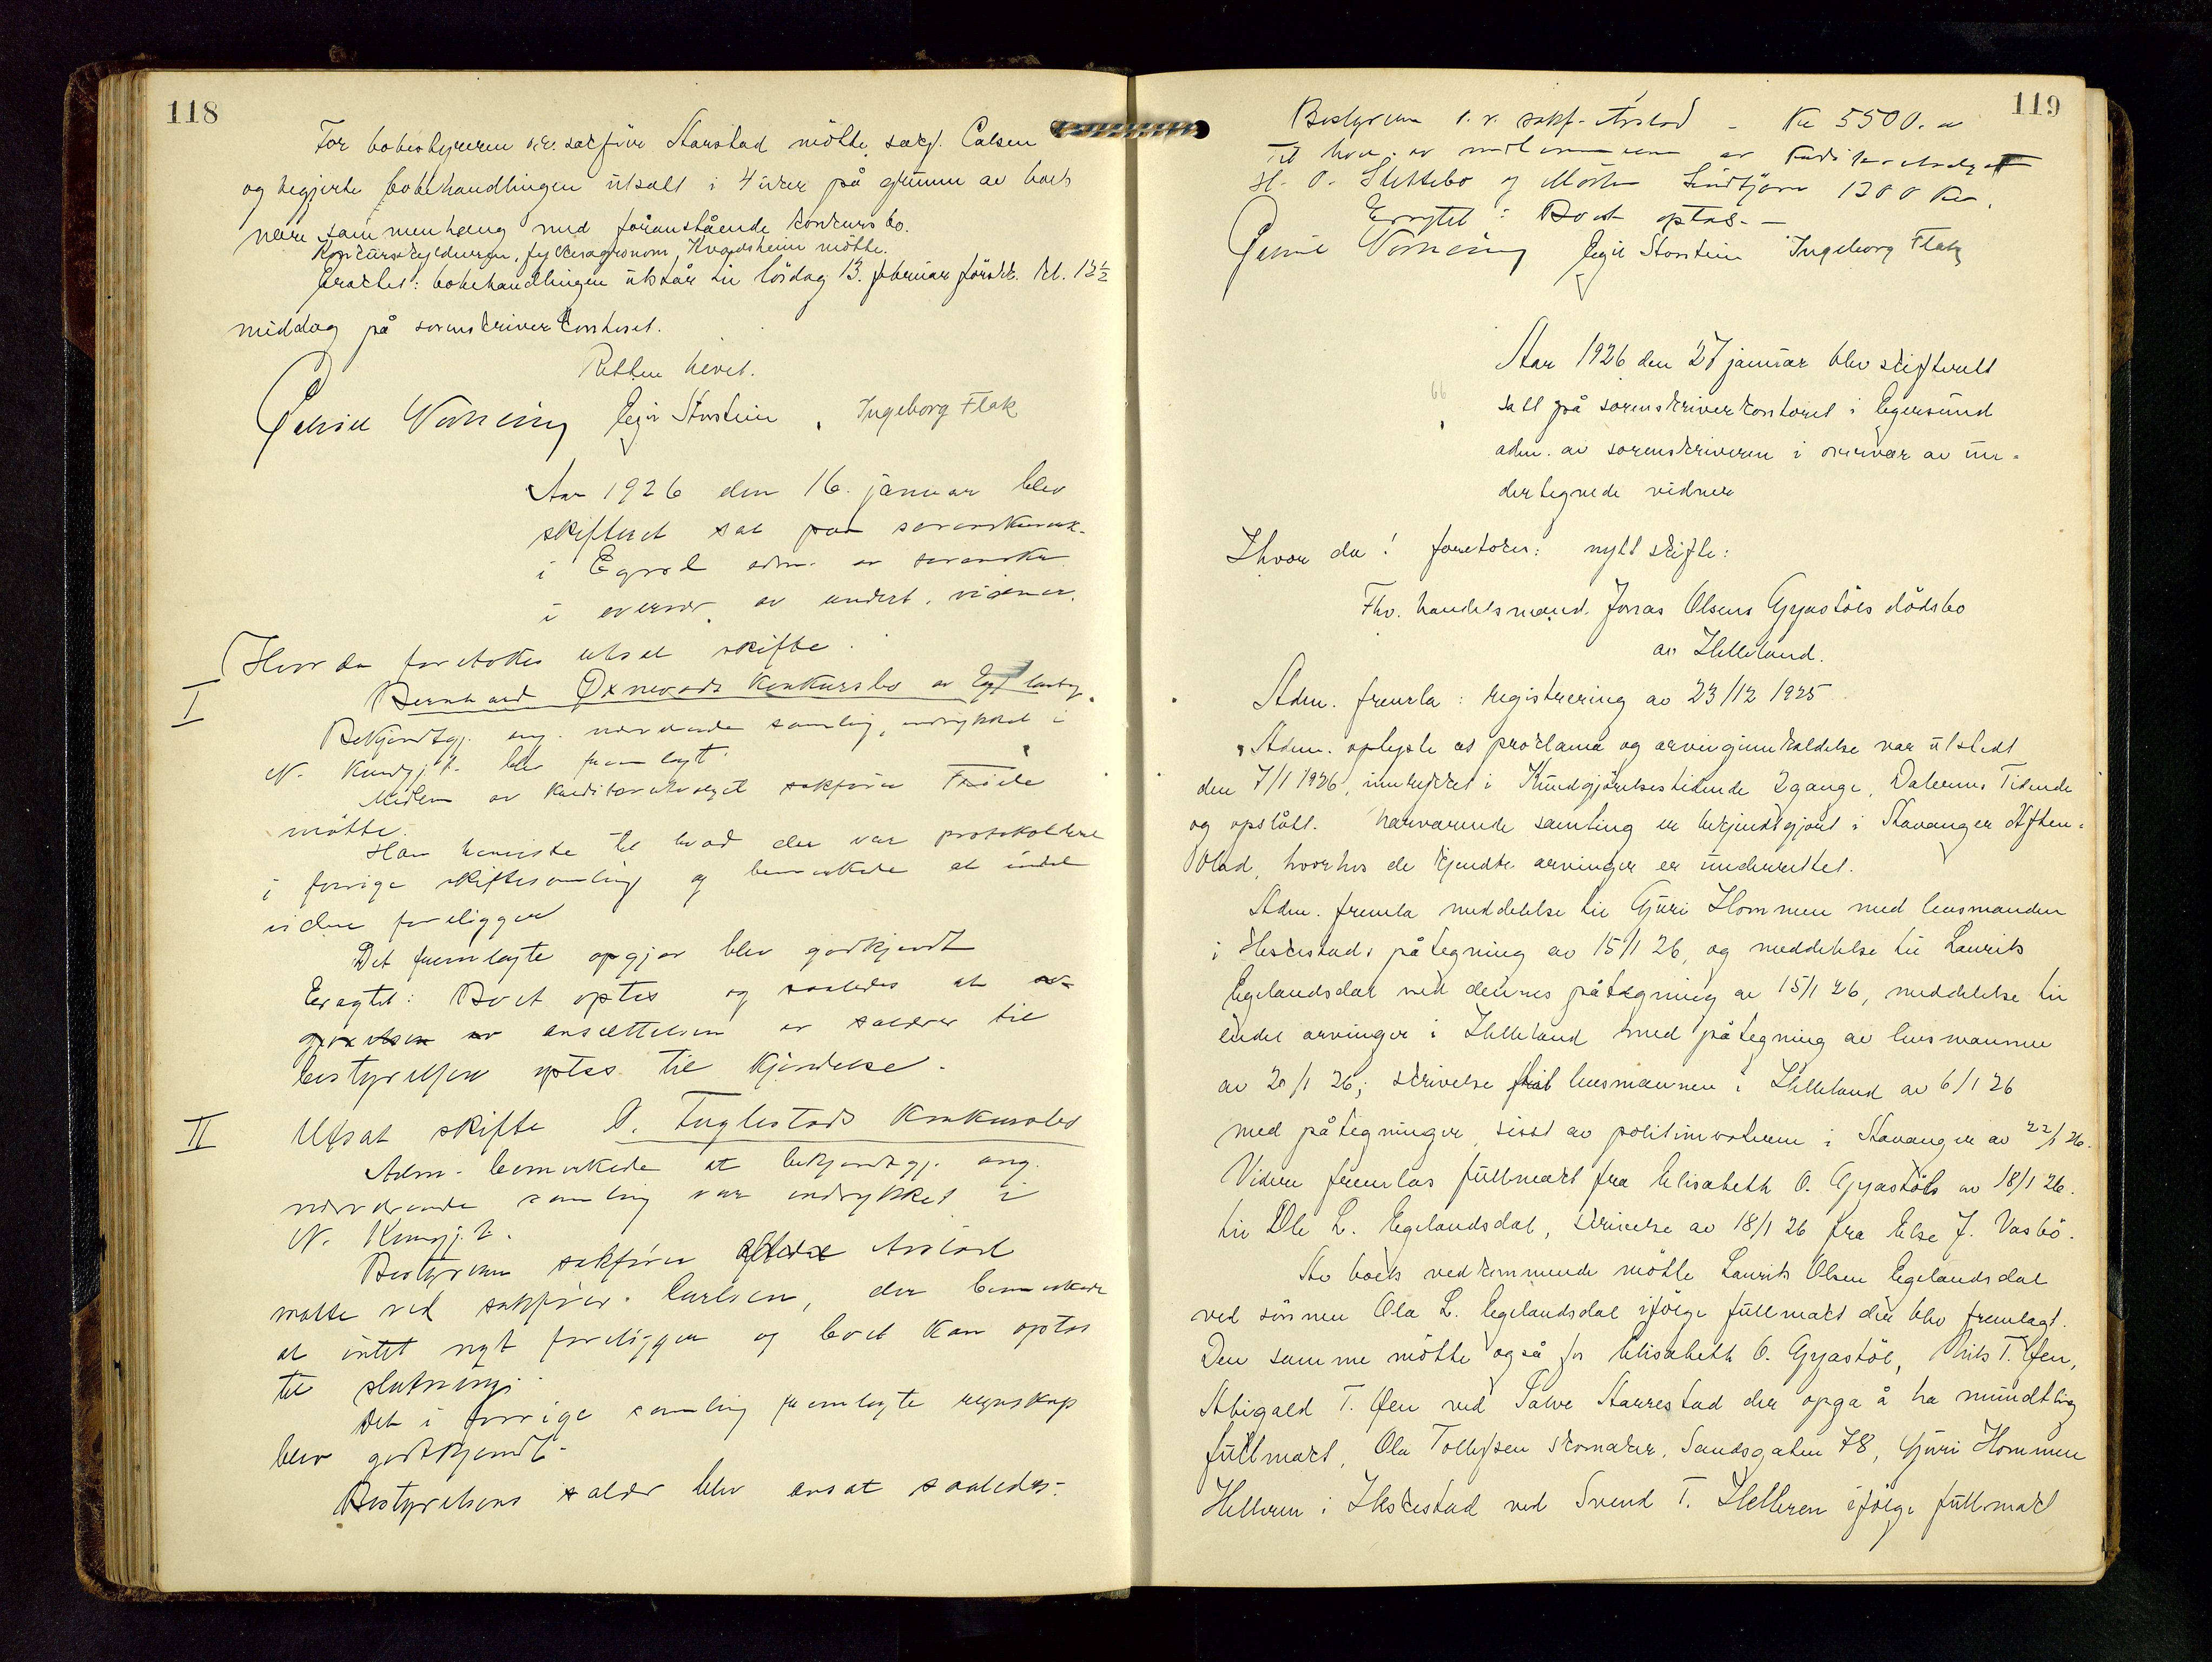 118
For bobestyreren o.r.sakfører Aarstad møtte sakf. Carlsen
og begjerte bobehandlingen utsatt i 4 uker på grunn av boets
nære sammenheng med foranstående konkursbo.
Konkursskyldneren, fylkesagronom Kvadsheim møtte.
Eragtet: bobehandlingen utstår til lørdag 13. februar førstk. kl. 12½
middag på sorenskriverkontoret.
Retten hevet.
Egil Storstein, Ingeborg Flak
Aar 1926 den 16. januar blev
skifteret sat paa sorenskriverk.
i Egrsd adm. av sorenskr.
i overvær av undert. vidner.
Hvor da foretokes utsat skifte:
I
Bernhard Oxnevads konkursbo av
Bekjendtgj. ang. nærværende samling, indrykket i
N. Kundgj.t. blev fremlagt.
Medlem av kreditorutvalget sakfører
møtte.
Han henviste til hvad der var protokolleret
i forrige skiftesamling og bemerkede at intet
videre foreligger
Det fremlagte opgjør blev godkjendt
Eragtet: Boet optas og saaledes at av-
gjørelsen av ansættelsen av salærer til
bestyrelsen optas til kjendelse.
II
Utsat skifte O. Fuglestads konkursbo
Adm. bemerkede at bekjendtgj. ang.
nærværende samling var indrykket i
N. Kungj.t.
Bestyreren sakfører Aarstad
møtte ved sakfører Carlsen, der bemerkede
at intet nyt foreligger og boet kan optas
til slutning.
Det i forrige samling fremlagte regnskap
blev godkjendt.
Bestyrelsens salær blev ansat saaledes:
119
Bestyreren o.r. sakf. Aarstad - Kr 5500.
Til hver av medlemmerne av kreditorutvalget
H. O. Slettebø og Morten Lindtjørn 1300 Kr.
Eragtet: Boet optas.
Egil Storstein Ingeborg Flak
Aar 1926 den 27 januar blev skifterett
satt på sorenskriverkontoret i Egersund
adm. av sorenskriveren i overvær av un-
dertegnede vidner
Hvor da! foretokes: nytt skifte:
Fhv. handelsmand Jonas Olsens Gyastøls dødsbo
av Helleland.
Adm. fremla: registrering av 23/12 1925
Adm. oplyste at proklama og arvinginnkaldelse var utstedt
den 7/1 1926, innrykket i Kundgjørelsestidende 2 gange, Dalernes Tidende
og opslått. Nærværende samling er bekjendtgjort i Stavanger Aften-
blad, hvorhos de kjendte arvinger er underrettet.
Adm. fremla meddelelse til Gjuri Hommen med lensmanden
i Heskestads påtegning av 15/1 26, og meddelelse til Laurits
Egelandsdal med dennes påtegning av 15/1 26, meddelelse til
endel arvinger i Helleland med påtegning av lensmannen
av 20/1 26; skrivelse til lensmannen i Helleland av 6/1 26
med påtegninger, sisst av politimesteren i Stavanger av 22/1 26.
Videre fremlas fullmakt fra Elisabeth O. Gyastøls av 18/1 26.
til Ole L. Egelandsdal, skrivelse av 18/1 26 fra Else J. Vasbø.
Av boets vedkommende møtte Laurits Olsen Egelandsdal
ved sønnen Ola L. Egelandsdal ifølge fullmakt der blev fremlagt.
Den samme møtte også for Elisabeth O. Gyastøl, Nils T. Øen,
Abigael T. Øen ved Salve Aarrestad der opga å ha mundtlig
fullmakt, Ola Tollefsen skomaker, Sandsgaten 78, Gjuri Hommen
Helleren i Heskestad ved Svend T. Helleren ifølge fullmakt